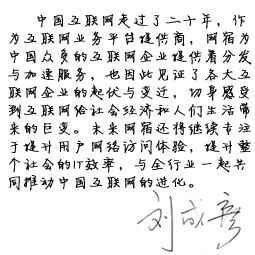 中国互联网走过了二十年，作
为互联网业务平台提供商，网宿为
中国众多的互联网企业提供着分发
与加速服务，也因此见证了各大互
联网企业的起伏与变迁，切身感受
到互联网给社会经济和人们生活带
来的巨变。未来网宿还将继续专注
于提升用户网络访问体验，提升整
个社会的IT效率，与全行业一起共
同推动中国互联网的进化。
刘成彦